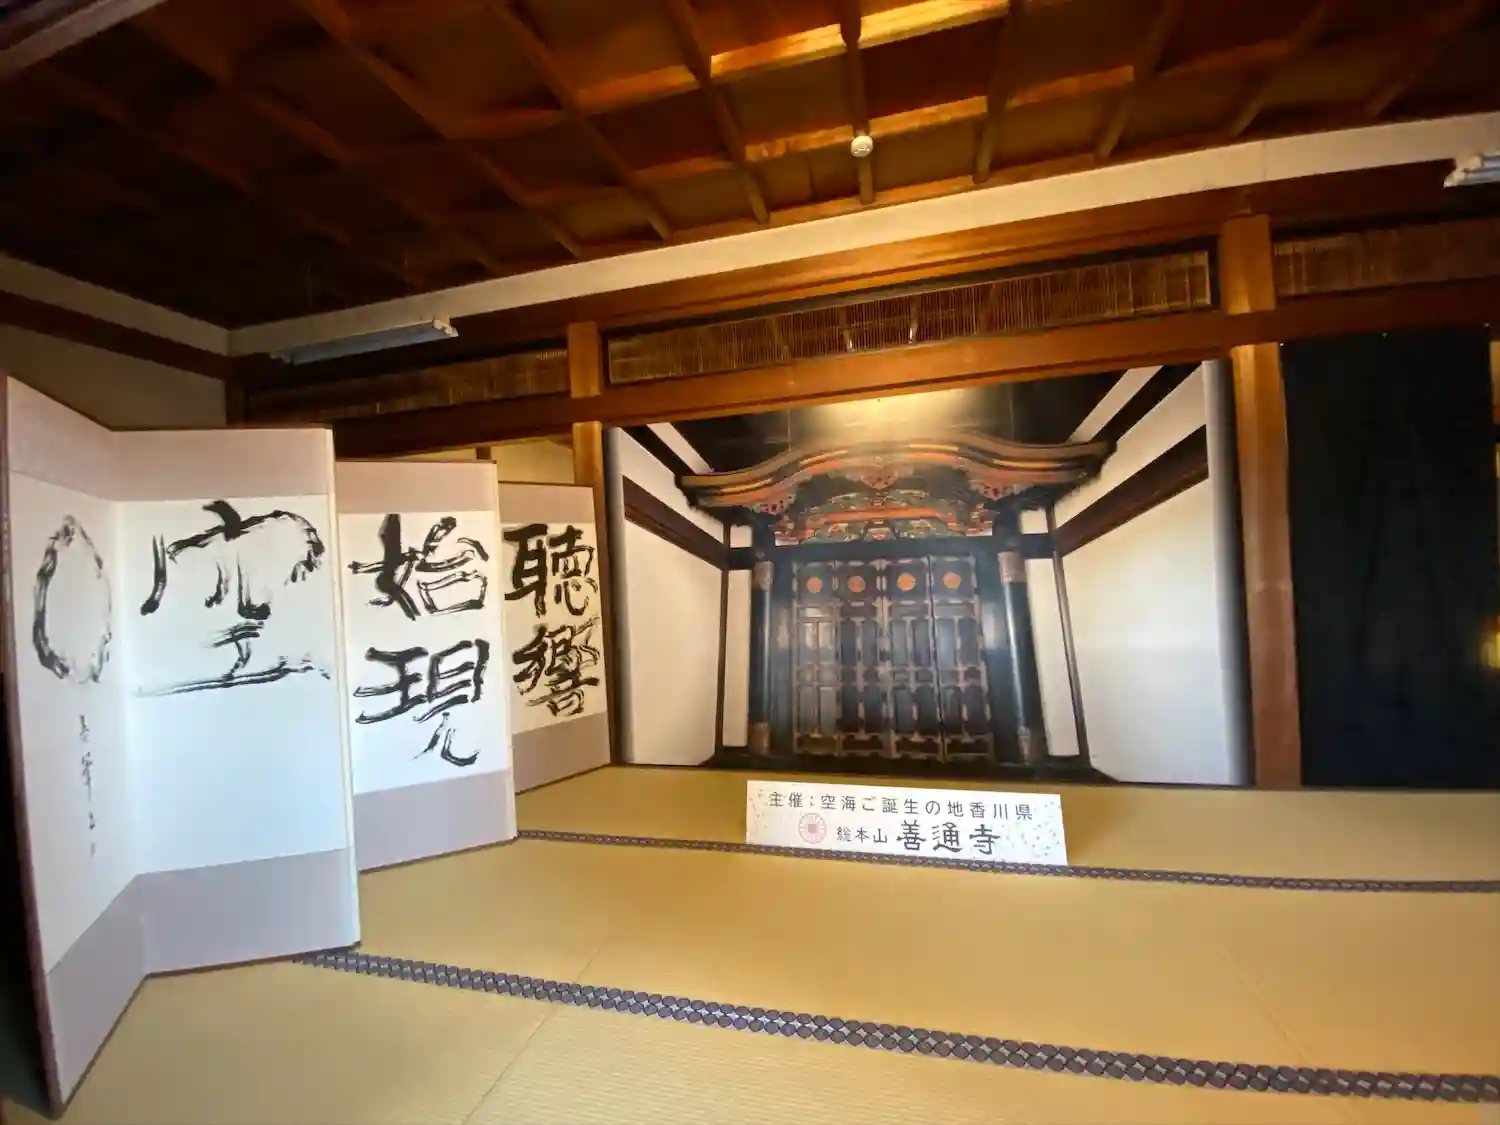 空
始現
聴響
主催:空海ご誕生の地香川県
総本山 善通寺